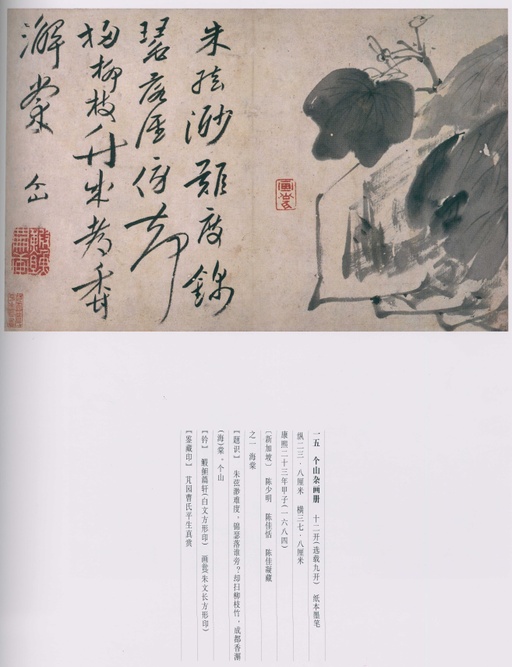 朱弦渺难度锦
瑟落谁傍却
扫柳枝竹成都香
澥棠 个山
一五　个山杂画册　十二开(选载九开)　纸本墨笔
纵二三·八厘米　横三七·八厘米
康熙二十三年甲子(一六八四)
(新加坡)　陈少明　陈佳恬　陈佳凝藏
之一　海棠
【题识】　朱弦渺难度，锦瑟落谁旁？却扫柳枝竹，成都香澥
(海)棠。个山
【钤】　驴屋人屋(白文方形印)　画渚(朱文长方形印)
【鉴藏印】　芃园曹氏平生真赏